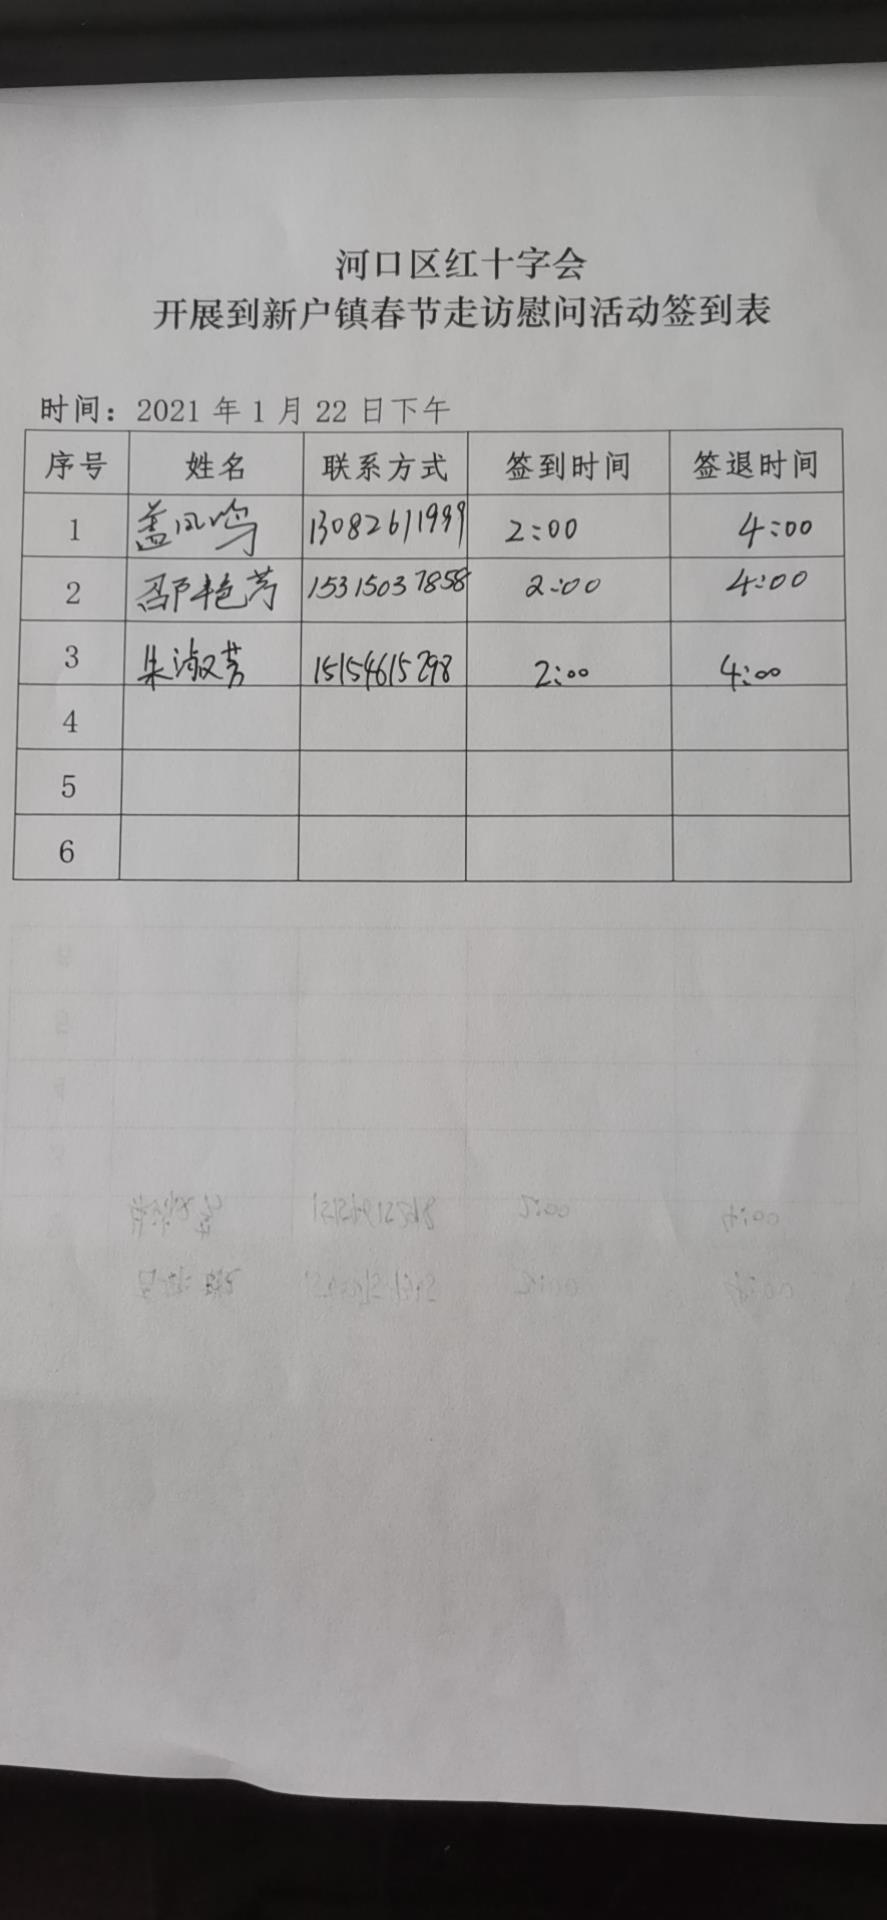 河口区红十字会
开展到新户镇春节走访慰问活动签到表
时间：2021 年 1 月 22 日下午
序号 姓名 联系方式 签到时间 签退时间
1 盖凤鸣 13082611999 2:00 4:00
2 邵艳芳 15315037858 2:00 4:00
3 朱淑芳 15154615298 2:00 4:00
4
5
6